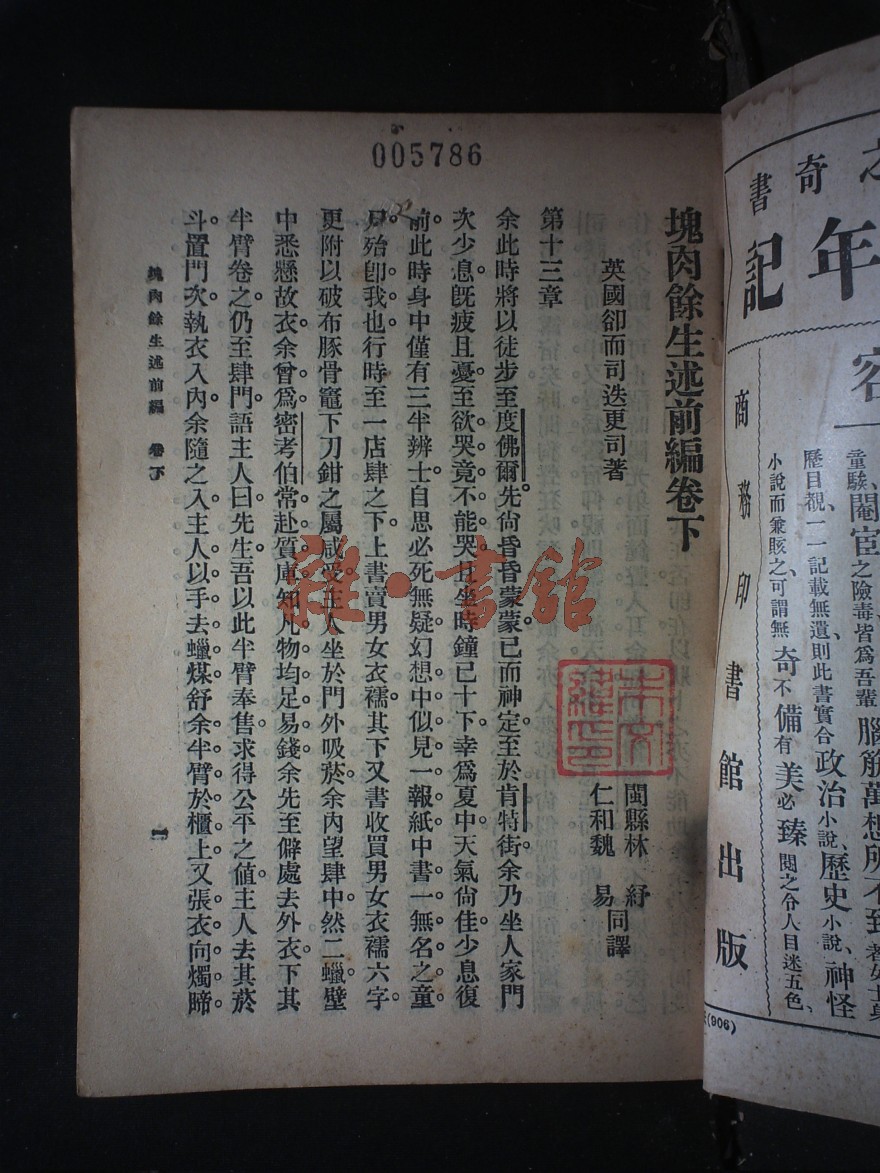 005786
塊肉餘生述前編卷下
英國卻而司迭更司著
閩縣林　紓
仁和魏　易
同譯
第十三章
余此時將以徒步至度佛爾。先尙昏昏蒙蒙。已而神定。至於肯特街。余乃坐人家門
次少息。旣疲且憂。至欲哭。竟不能哭。且坐時鐘已十下。幸爲夏中。天氣尙佳。少息復
前。此時身中僅有三半辨士。自思必死無疑。幻想中似見一報紙中書一無名之童
尸。殆卽我也。行時至一店肆之下。上書賣男女衣襦。其下又書收買男女衣襦六字。
更附以破布豚骨竈下刀鉗之屬咸受。主人坐於門外吸菸。余內望肆中。然二蠟。壁
中悉懸故衣。余曾爲密考伯常赴質庫。知凡物均足易錢。余先至僻處去外衣。下其
半臂卷之。仍至肆門。語主人曰。先生。吾以此半臂奉售。求得公平之値。主人去其菸
斗。置門次。執衣入內。余隨之入。主人以手去蠟煤。舒余半臂於櫃上。又張衣向燭。諦
塊肉餘生述前編　卷下
一
雜·書館
奇書
年記
商務印書館出版
童騃、閹宦之險毒皆爲吾輩腦筋萬想所不到
歷目覩、一一記載無遺則此書實合政治小說、歷史小說、神怪
小說而兼賅之、可謂無奇不備有美必臻閱之令人目迷五色、
(906)